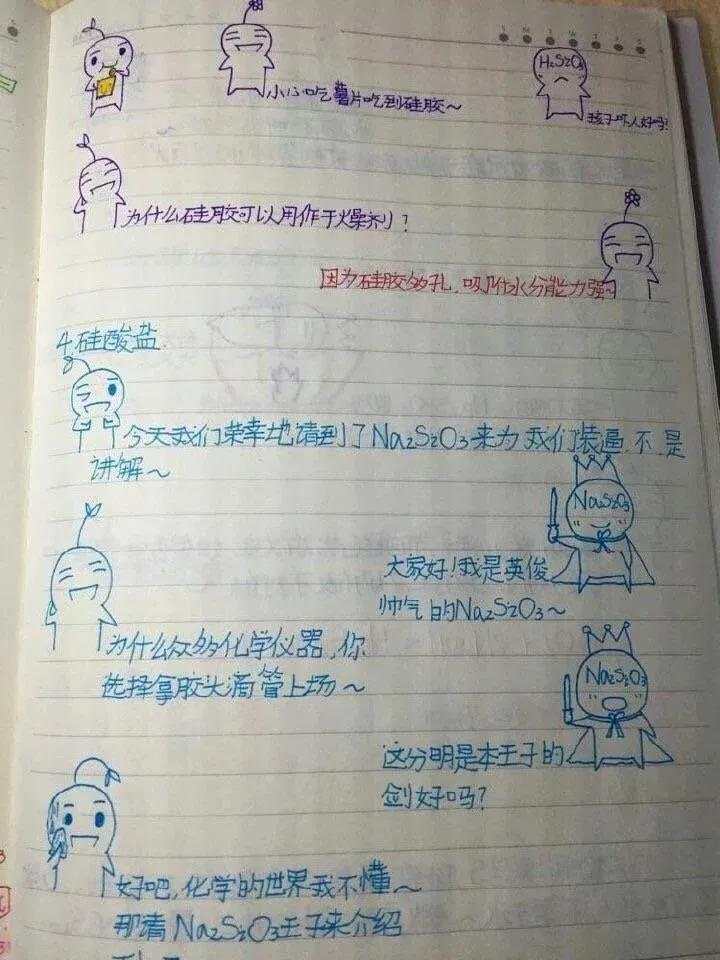 小心吃薯片吃到硅胶～
H₂SiO₃
孩子吓人好吗?
为什么硅胶可以用作干燥剂?
因为硅胶多孔，吸附水分能力强
4.硅酸盐
今天我们荣幸地请到了Na₂SiO₃来为我们装逼，不，是
讲解～
Na₂SiO₃
大家好!我是英俊
帅气的Na₂SiO₃～
为什么众多化学仪器，你
选择拿胶头滴管上场～
Na₂SiO₃
这分明是本王子的
剑好吗?
好吧，化学的世界我不懂～
那请Na₂SiO₃王子来介绍